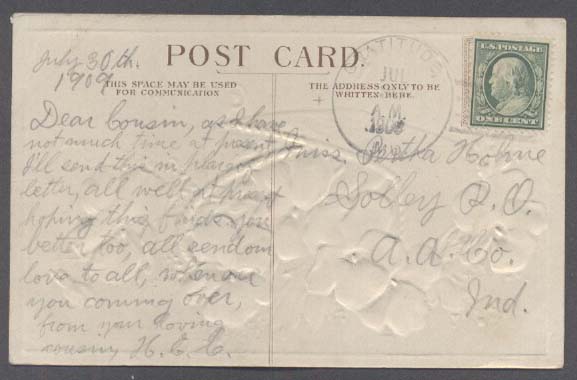 July 30th.
1909
POST CARD.
THIS SPACE MAY BE USED
FOR COMMUNICATION
THE ADDRESS ONLY TO BE
WRITTEN HERE.
GRATITUDE
JUL
U.S. POSTAGE
ONE CENT
Dear Cousin, as I have
not much time at present
I'll send this in place of
letter, all well at present
hoping this finds you
better too, all send our
love to all, when are
you coming over,
from your loving
cousin H.E.
Miss. Bertha
Solley P.O.
A.A. Co.
Md.